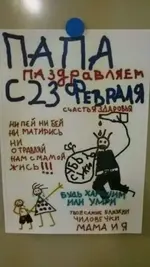 ПАПА
ПАЗДРАВЛЯЕМ
С 23 ФЕВРАЛЯ
СЧАСТЬЯ ЗДАРОВЯ
НИ ПЕЙ НИ БЕЙ
НИ МАТИРИСЬ
НИ
ОТРАВЛЯЙ
НАМ С МАМОЙ
ЖИСЬ!!!
БУДЬ ХАРОШИМ
ИЛИ УМРИ
ЧИЛОВЕЧКИ
МАМА И Я